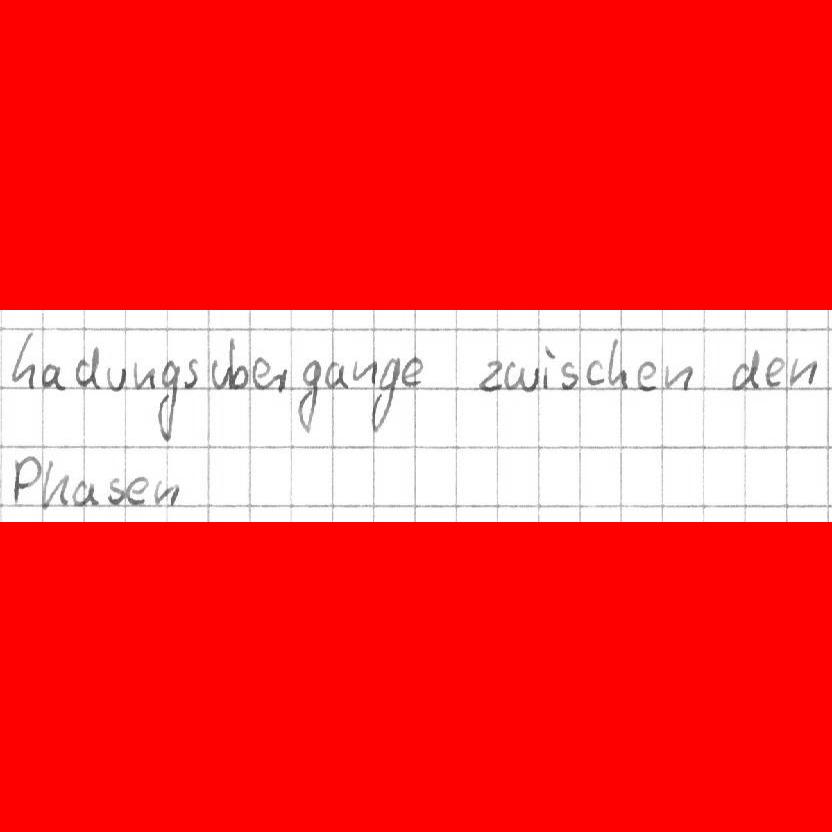 Ladungsübergange zwischen den
Phasen